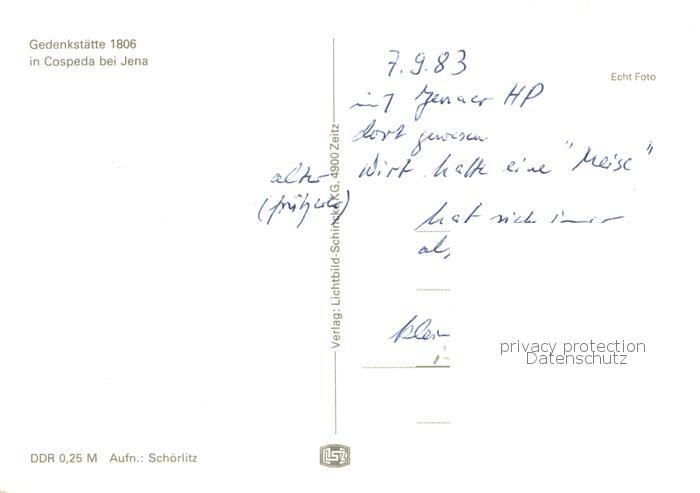 Gedenkstätte 1806
in Cospeda bei Jena
Echt Foto
7.9.83
mit Jenaer HP
dort gewesen
alter Wirt hatte eine "Meise"
hat sich immer
als
klein
Verlag: Lichtbild-Schincke KG, 4900 Zeitz
privacy protection
Datenschutz
DDR 0,25 M Aufn.: Schörlitz
LSZ